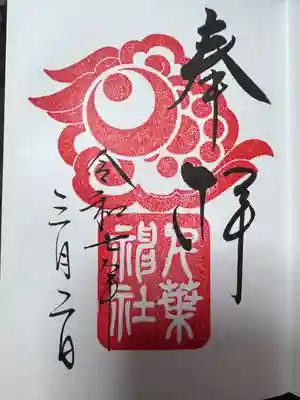 奉拝
葉
神社
令和七年
三月二日